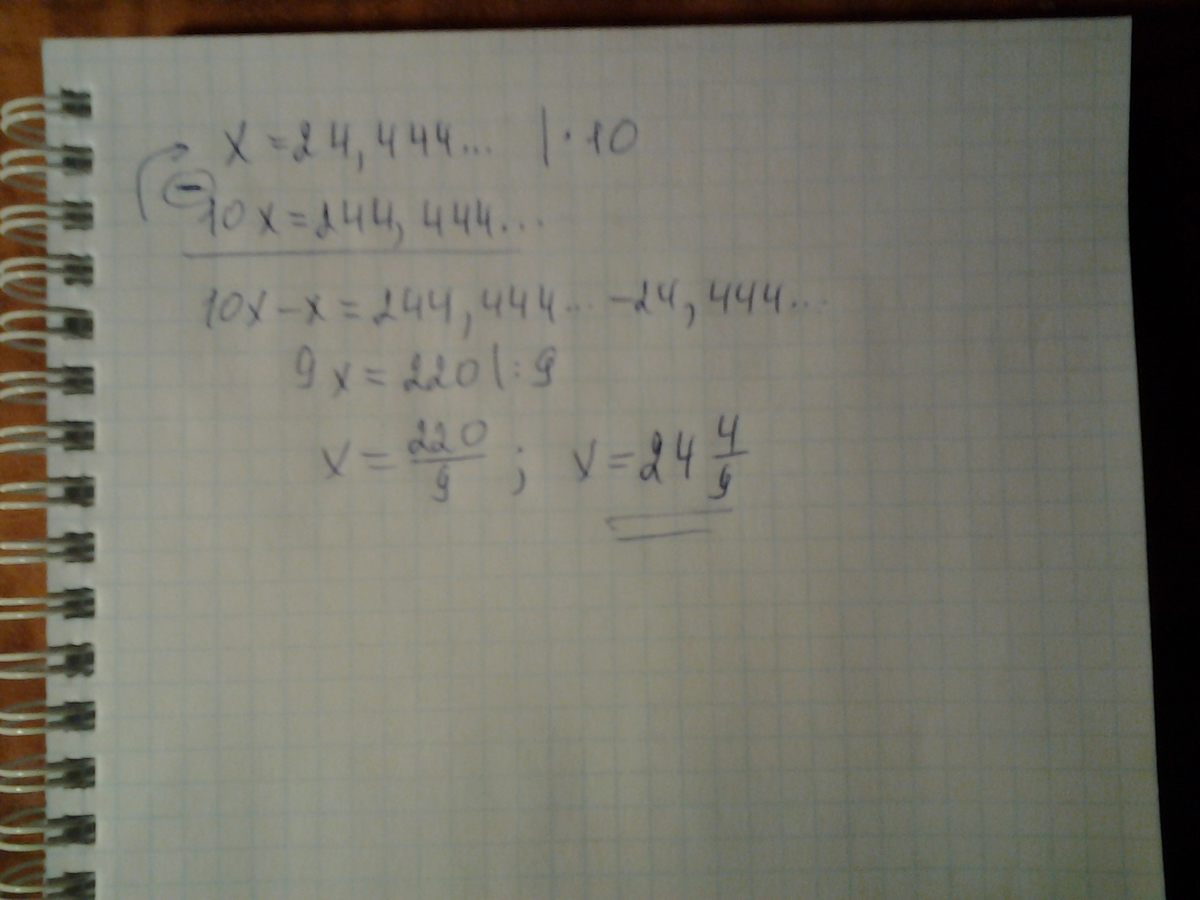 x = 24,444... | · 10
10x = 244,444...
10x - x = 244,444... - 24,444...
9x = 220 | : 9
x = 220/9 ; x = 24 4/9